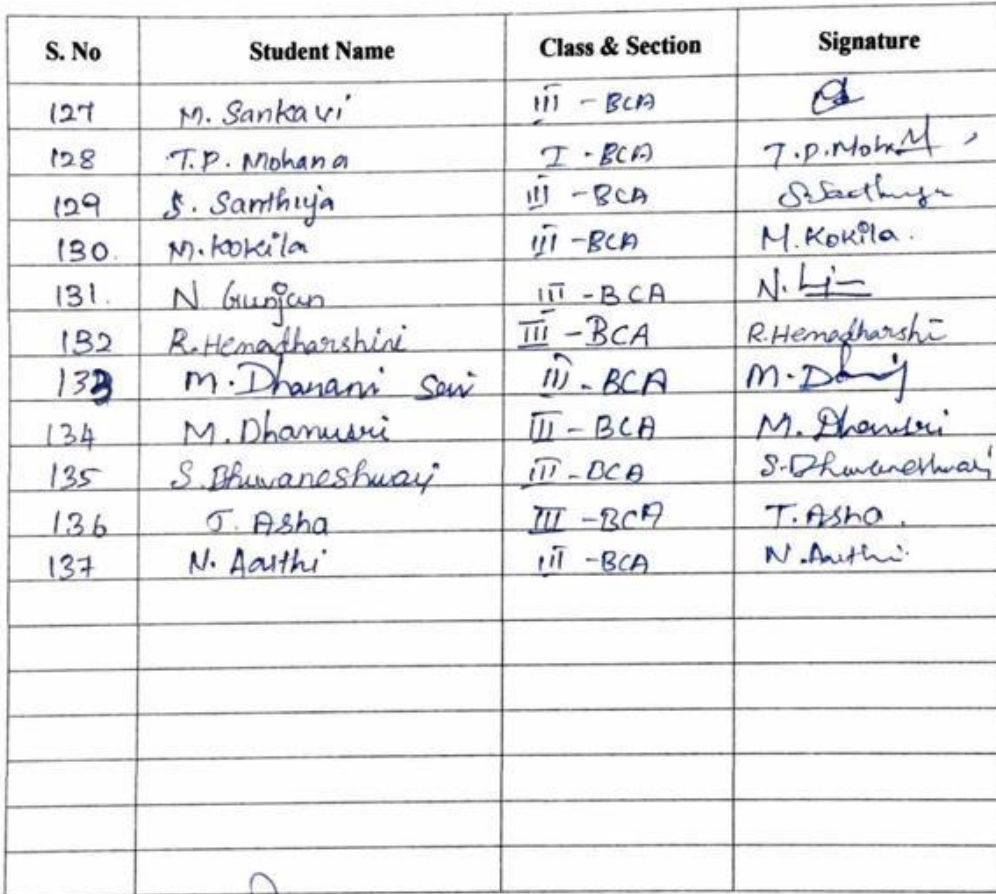 S. No Student Name Class & Section Signature
127 M. Sankavi III - BCA
128 T.P. Mohana I - BCA T.P.Mohan
129 S. Santhiya III - BCA
130. M. Kokila III - BCA M. Kokila.
131. N. Gunjan III - BCA N.
132 R. Hemadharshini III - BCA R. Hemadharshi
133 M. Dharani III - BCA M.
134 M. Dhanusri III - BCA M. Dhanusri
135 S. Bhuvaneshwari III - BCA S. Bhuvaneshwari
136 T. Asha III - BCA T. Asha.
137 N. Aarthi III - BCA N. Aarthi